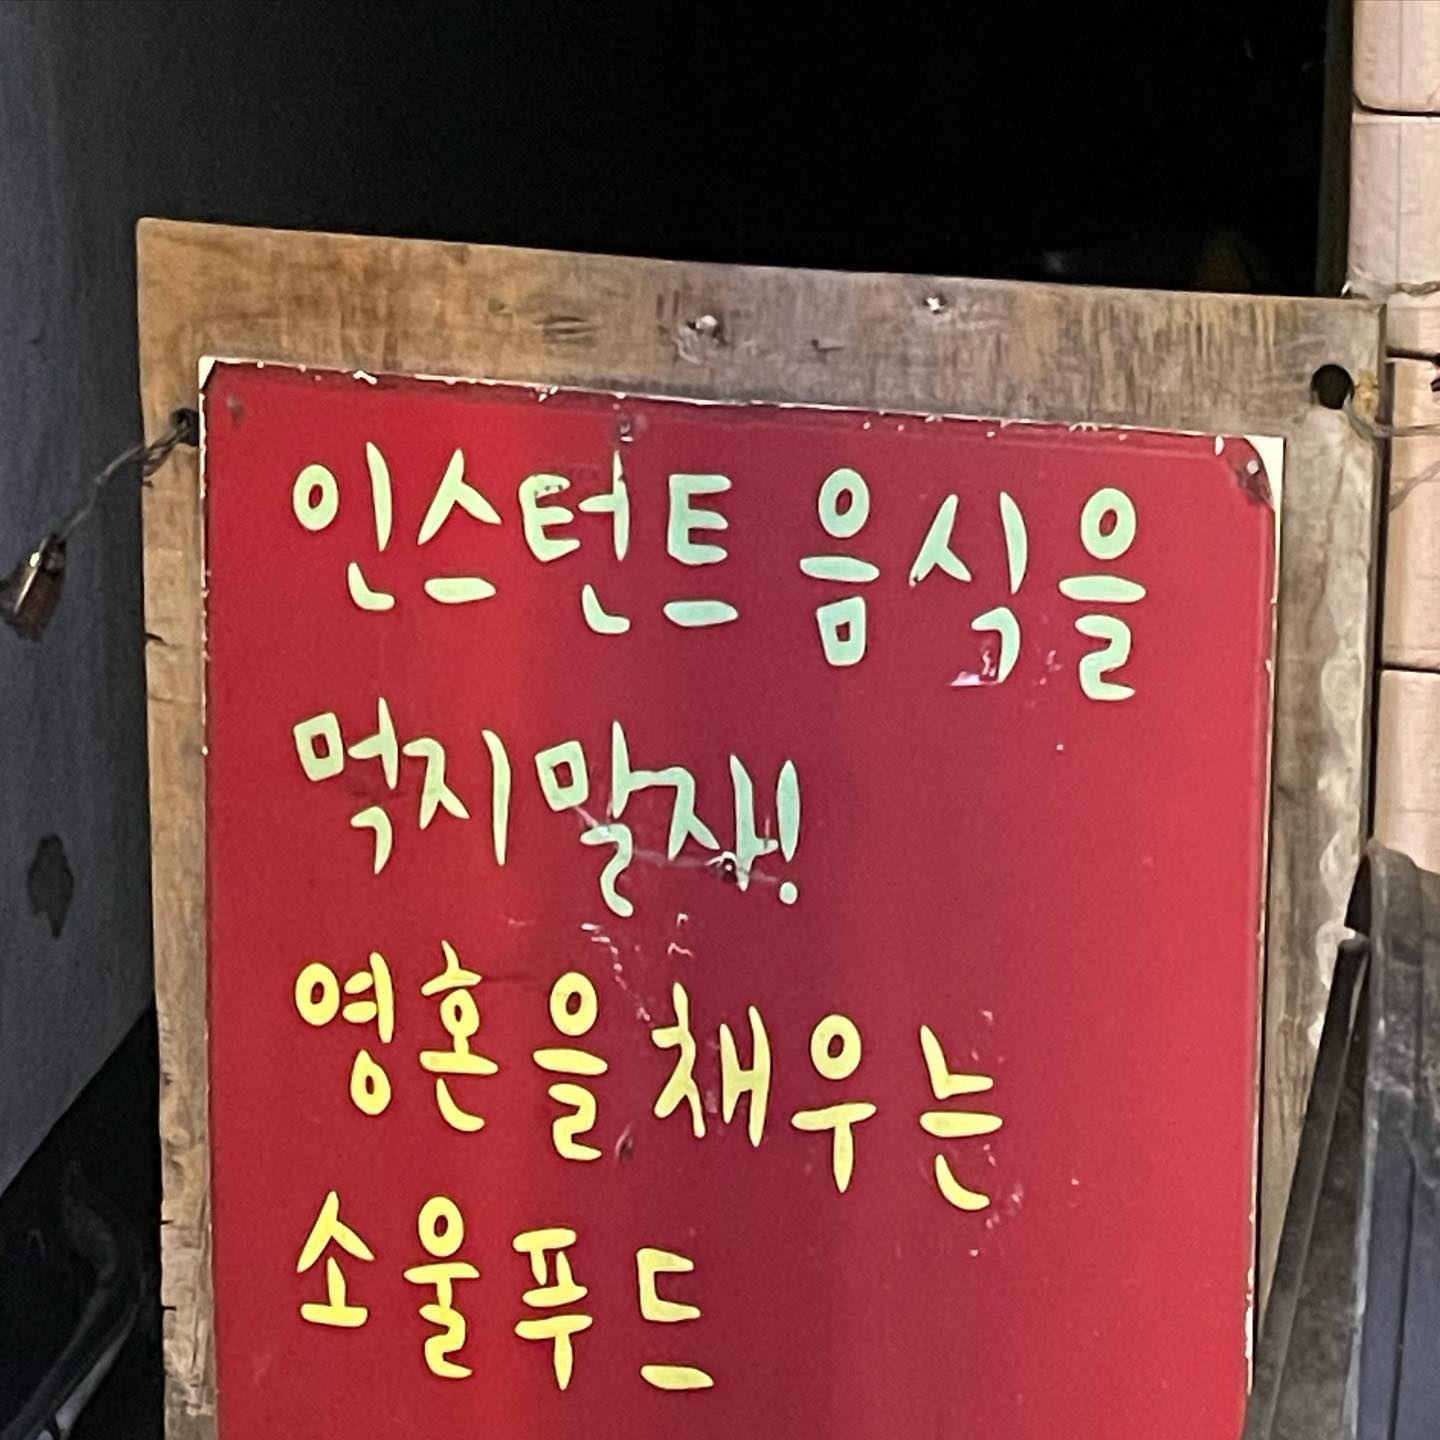 인스턴트 음식을
먹지 말자!
영혼을 채우는
소울푸드